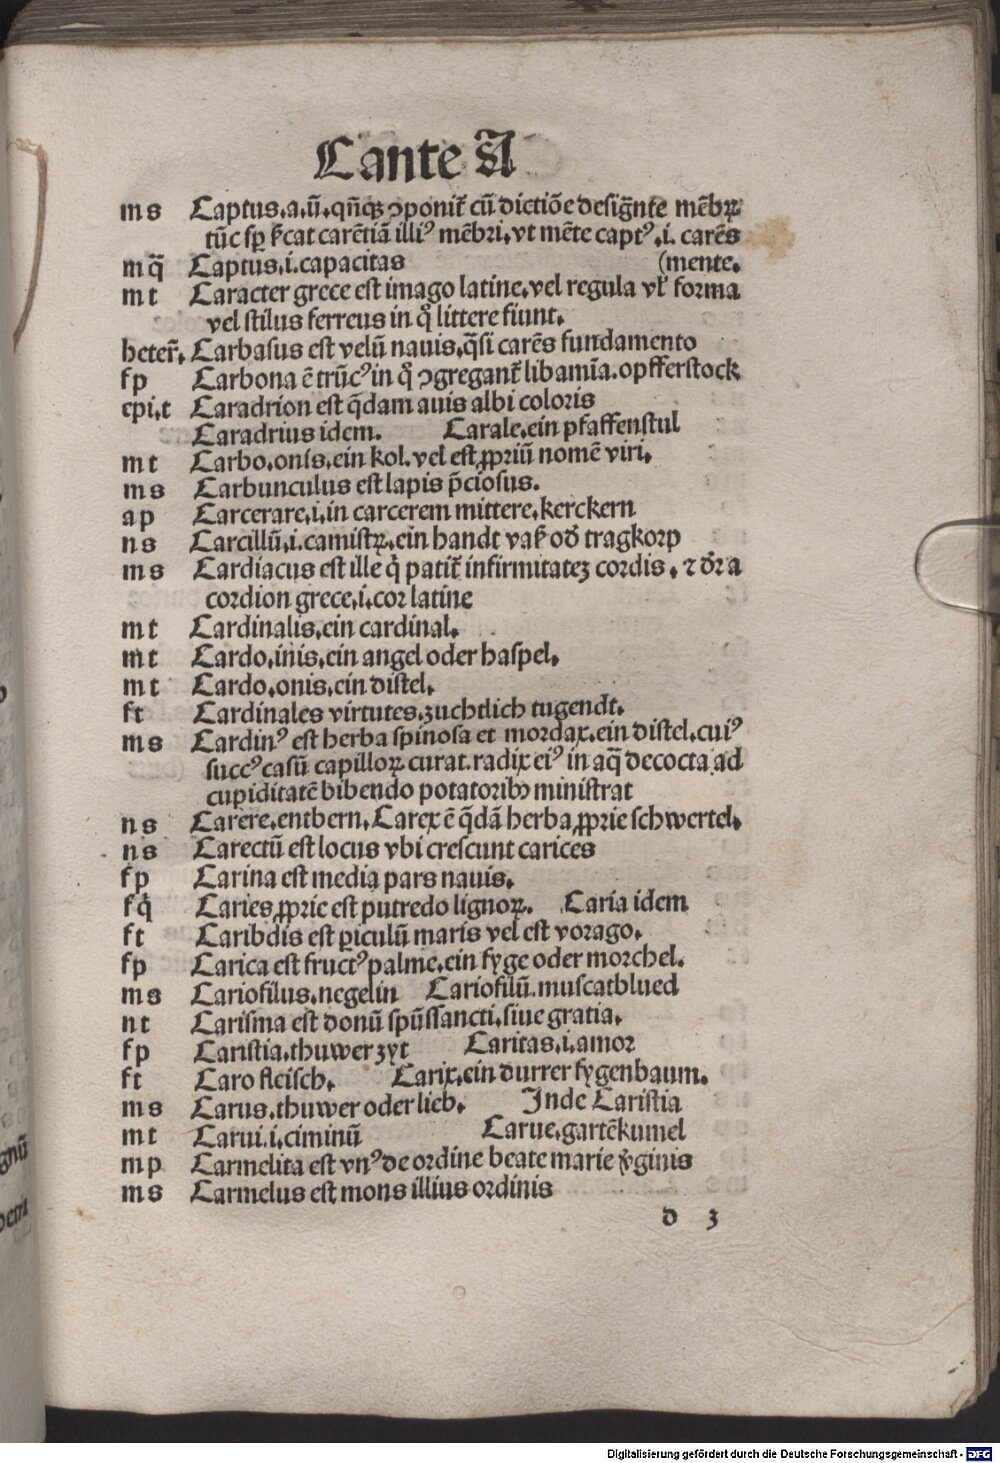 C ante A
m s Captus.a.ū.qn̄qꝫ ꝯponit̄ cū dictiōe desiḡnte mēbꝝ
tūc sꝑ ſicat carētiā illiꝰ mēbri.vt mēte captꝰ.i. carēs
m q̄ Captus.i.capacitas (mente.
m t Caracter grece est imago latine.vel regula vl̓ forma
vel stilus ferreus in q̊ littere fiunt.
heter̄. Carbasus est velū nauis.q̄si carēs fundamento
f p Carbona ē trūcꝰ in q̊ ꝯgregant̄ libamīa.opfferstock
epi.t Caradrion est q̄dam auis albi coloris
Caradrius idem. Carale.ein pfaffenstul
m t Carbo.onis.ein kol.vel est ꝓpriū nomē viri.
m s Carbunculus est lapis p̄ciosus.
a p Carcerare.i.in carcerem mittere.kerckern
n s Carcillū.i.camistꝝ.ein handt vaß od̓ tragkorp
m s Cardiacus est ille q̇ patit̄ infirmitateꝫ cordis. ⁊ dr̄ a
cordion grece.i.cor latine
m t Cardinalis.ein cardinal.
m t Cardo.inis.ein angel oder haspel.
m t Cardo.onis.ein distel.
f t Cardinales virtutes.zuchtlich tugendt.
m s Cardinꝰ est herba spinosa et mordax.ein distel.cuiꝰ
succꝰ casū capilloꝝ curat.radix eiꝰ in aq̄ decocta ad
cupiditatē bibendo potatoribꝰ ministrat
n s Carere.entbern. Carex ē q̄dā herba ꝓprie schwertel.
n s Carectū est locus vbi crescunt carices
f p Carina est media pars nauis.
f q̇ Caries ꝓprie est putredo lignoꝝ. Caria idem
f t Caribdis est ꝑiculū maris vel est vorago.
f p Carica est fructꝰ palme.ein fyge oder morchel.
m s Cariofilus.negelin Cariofilū.muscatblued
n t Carisma est donū spūssancti.siue gratia.
f p Caristia.thuwer zyt Caritas.i.amor
f t Caro fleisch. Carix.ein durrer fygenbaum.
m s Carus.thuwer oder lieb. Inde Caristia
m t Carui.i.ciminū Carue.gartēkumel
m p Carmelita est vnꝰ de ordine beate marie v̓ginis
m s Carmelus est mons illius ordinis
d 3
Digitalisierung gefördert durch die Deutsche Forschungsgemeinschaft - DFG